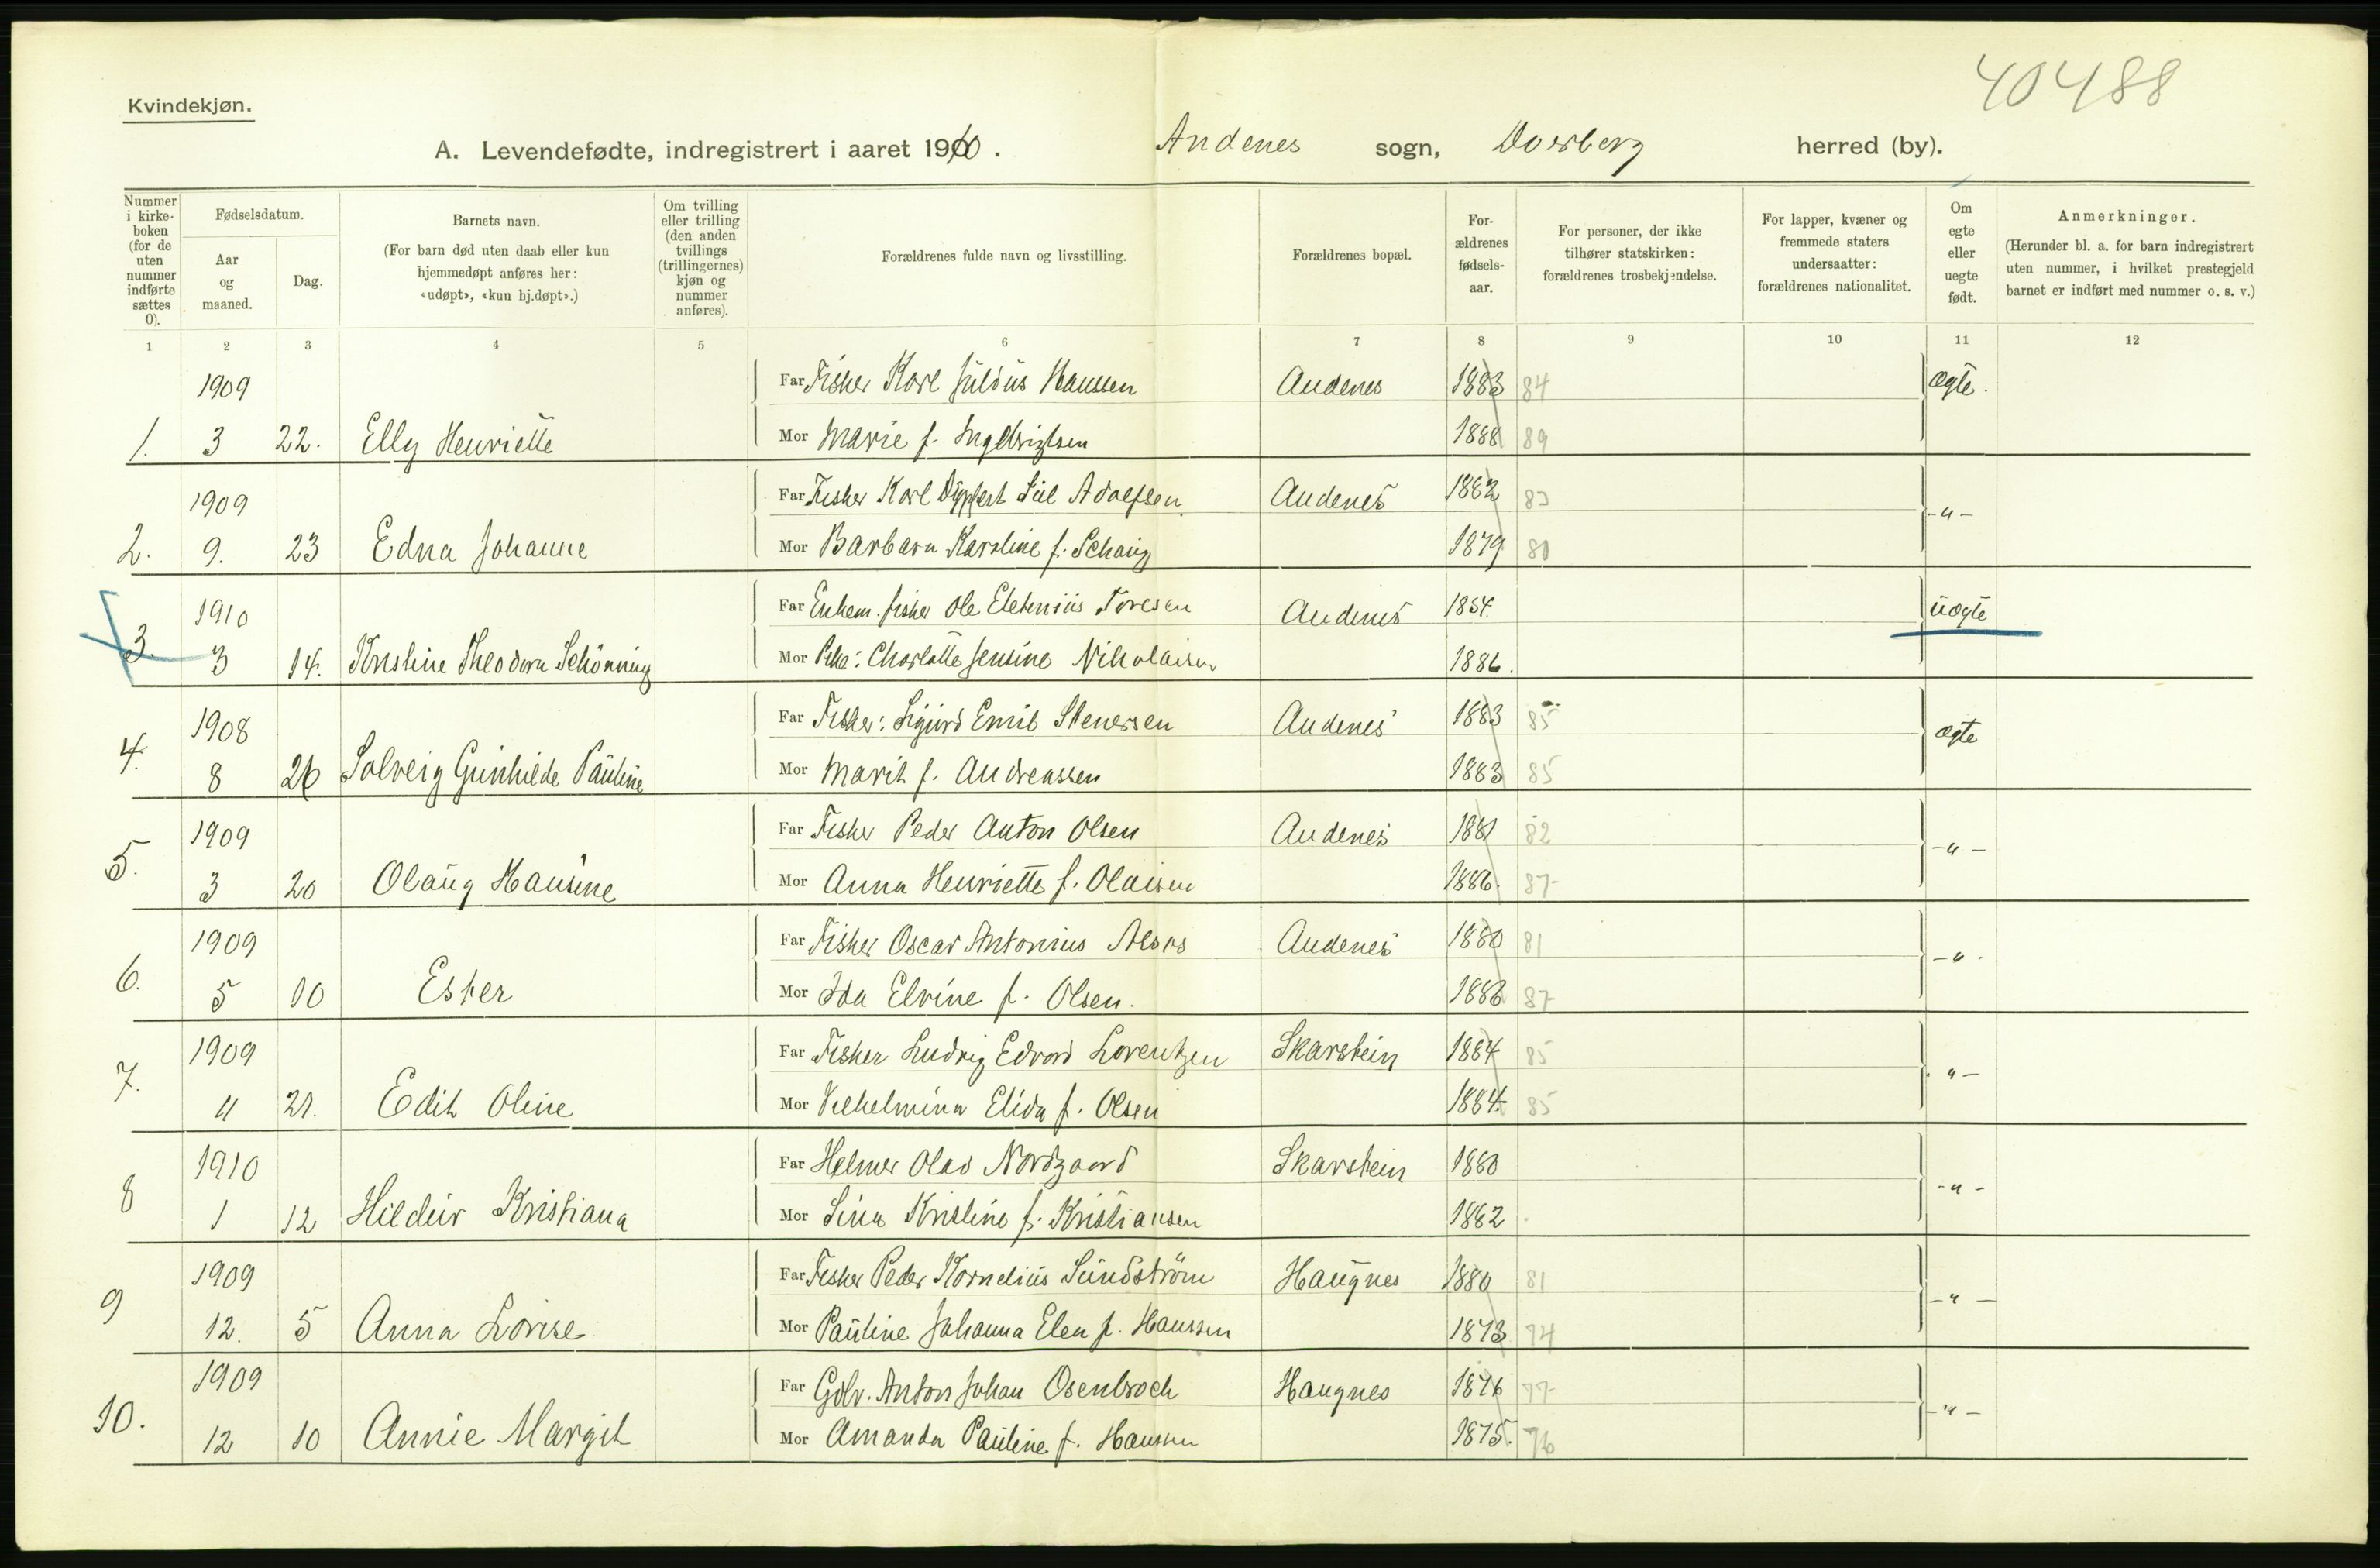 40488
Kvindekjøn.
A. Levendefødte, indregistrert i aaret 1910. Andenes sogn, Dverberg herred (by).
Nummer i kirkeboken (for de uten nummer indførte sættes 0).
Fødselsdatum.
Aar og maaned.
Dag.
Barnets navn.
(For barn død uten daab eller kun hjemmedøpt anføres her: «udøpt», «kun hj.døpt».)
Om tvilling eller trilling (den anden tvillings (trillingernes) kjøn og nummer anføres).
Forældrenes fulde navn og livsstilling.
Forældrenes bopæl.
Forældrenes fødselsaar.
For personer, der ikke tilhører statskirken: forældrenes trosbekjendelse.
For lapper, kvæner og fremmede staters undersaatter: forældrenes nationalitet.
Om egte eller uegte født.
Anmerkninger.
(Herunder bl. a. for barn indregistrert uten nummer, i hvilket prestegjeld barnet er indført med nummer o. s. v.)
1 2 3 4 5 6 7 8 9 10 11 12
1909 Far Fisker Karl Julius Hanssen Andenes 1883 84 ægte.
1. 3 22. Elly Henriette Mor Marie f. Ingebrigtsen 1888 89
1909 Far Fisker Karl Adolfsen Andenes 1882 83 -"-
2. 9. 23 Edna Johanne Mor Barbara Karoline f. Schanig 1879 80
1910 Far Enkem. fisker Ole Toresen Andenes 1854. uægte
3. 3 14. Kristine Theodora Schönning Mor Pike: Charlotte Jensine Nikolaisen 1886.
1908 Far Fisker: Sigurd Emil Stenersen Andenes 1883 85 ægte
4. 8 26 Solveig Gunhilde Pauline Mor Marit f. Andreassen 1883 85
1909 Far Fisker Peder Anton Olsen Andenes 1881 82 -"-
5. 3 20 Olaug Hansine Mor Anna Henriette f. Olaisen 1886. 87
1909 Far Fisker Oscar Antonius Alsos Andenes 1880 81 -"-
6. 5 10 Ester Mor Ida Elvine f. Olsen. 1886 87
1909 Far Fisker Ludvig Edvard Lorentzen Skarstein 1884 85 "-
7. 11 21. Edit Oline Mor Vilhelmina Elida f. Olsen 1884. 85
1910 Far Helmer Olav Nordgaard Skarstein 1880 -"-
8 1 12 Hildur Kristiana Mor Sina Kristine f. Kristiansen 1882
1909 Far Fisker Peder Kornelius Sundström Haugnes 1880 81 -"-
9 12. 5 Anna Lovise Mor Pauline Johanna Elen f. Hanssen 1873 74
1909 Far Gdbr. Anton Johan Osenbroch Haugnes 1876 77 -"-
10. 12 10 Annie Margit Mor Amanda Pauline f. Hanssen 1875. 76